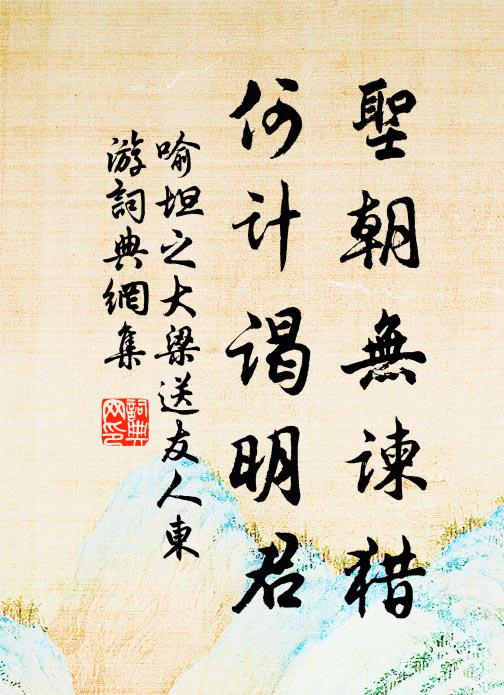 聖朝無諫猎
何计谒明君
喻坦之大梁送友人東
游詞典網集
詞典
网印